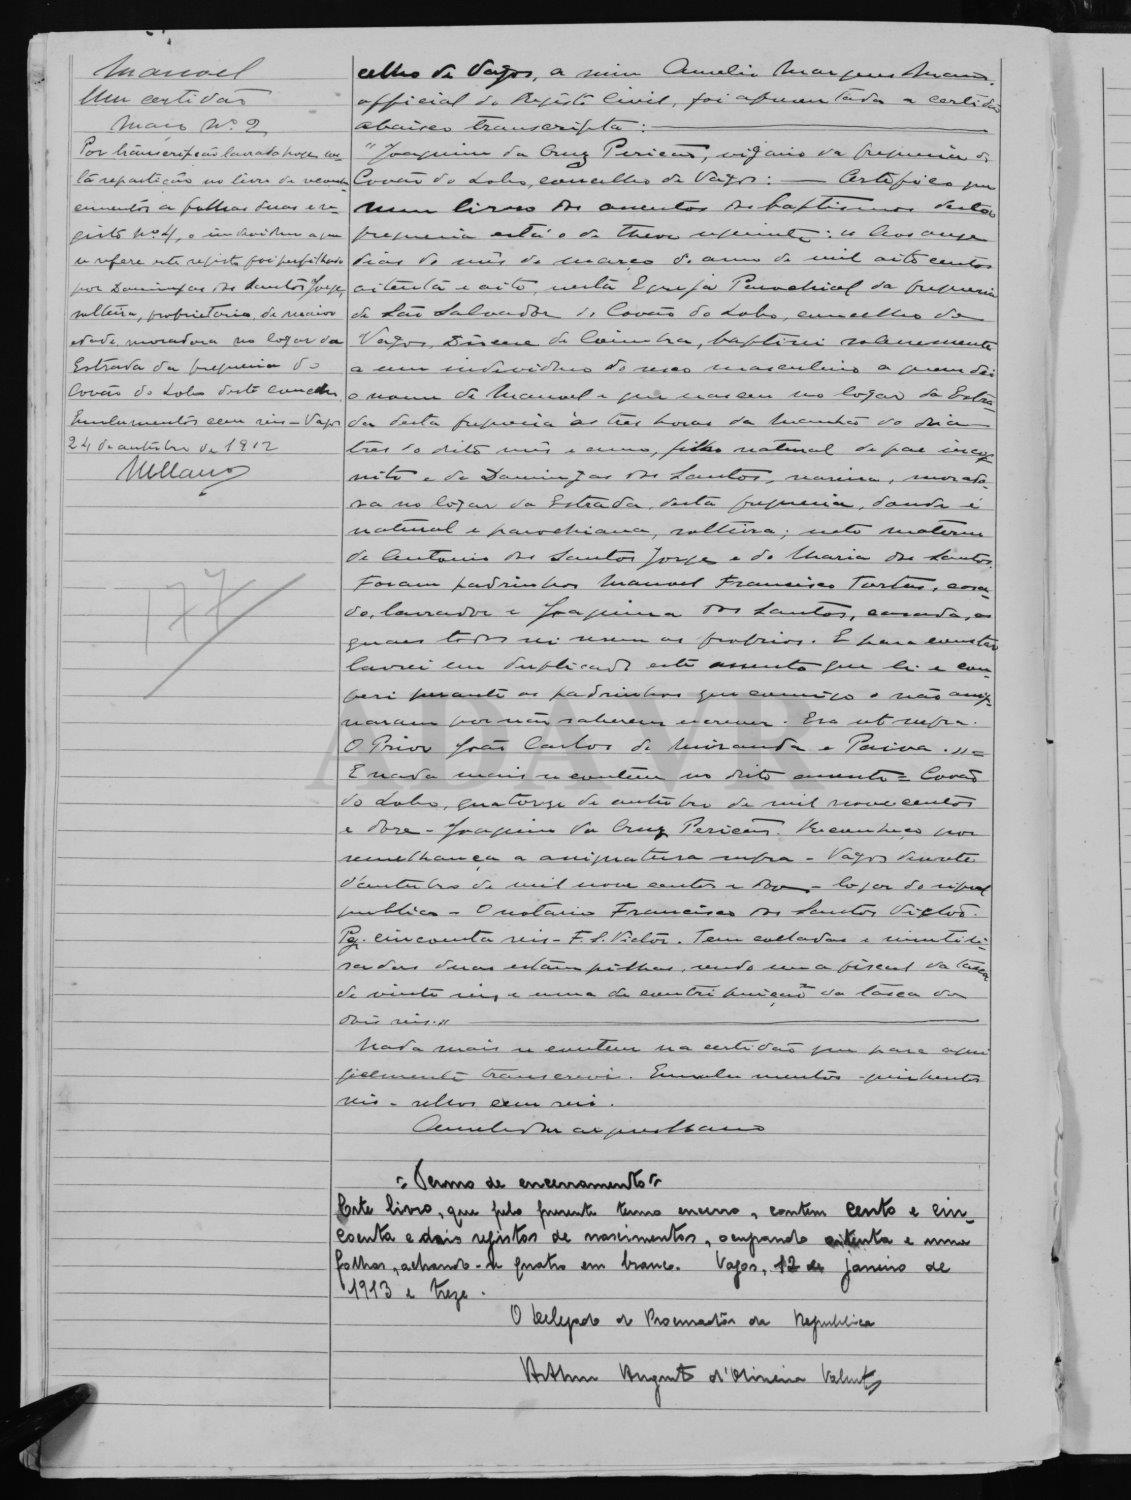 Manoel
Uma certidão
Maço Nº 2
Por transcripção lavrada hoje nes-
ta repartição no livro de reconhe-
cimentos a folhas duas e re-
gisto nº 4, o individuo a que
se refere este registo foi perfilhado
por Domingas dos Santos Jorge,
solteira, proprietaria, de maior
edade, moradora no logar da
Estrada da freguesia do
Covão do Lobo deste concelho
Emolumentos cem reis - Vagos
24 de outubro de 1912
177
celho de Vagos, a mim Amelio Marques Mano,
official do Registo Civil, foi apresentada a certidão
abaixo transcripta:
"Joaquim da Cruz Pericão, vigario da freguesia do
Covão do Lobo, concelho de Vagos: — Certifico que
num livro dos assentos de baptismos desta
freguesia está o do theor seguinte: « Aos onze
dias do mês de março do anno de mil oito centos
oitenta e oito, nesta Egreja Parochial da freguesia
de São Salvador do Covão do Lobo, concelho de
Vagos, Diocese de Coimbra, baptisei solemnemente
a um individuo do sexo masculino a quem dei
o nome de Manoel e que nasceu no logar da Estra-
da desta freguesia às tres horas da manhã do dia
tres do dito mês e anno, filho natural de pae incog-
nito e de Domingas dos Santos, , morado-
ra no logar da Estrada, desta freguesia, donde é
natural e parochiana, solteira; neto materno
de Antonio dos Santos Jorge e de Maria dos Santos.
Foram padrinhos Manoel Francisco Tortas, casa-
do, lavrador e Joaquina dos Santos, casada, os
quaes todos sei serem os proprios. E para constar
lavrei em duplicado este assento que li e con-
feri perante os padrinhos que comigo o não assig-
naram por não saberem escrever. Era ut supra.
O Prior João Carlos de Miranda e Paiva .»=
E nada mais se contem no dito assento = Covão
do Lobo, quatorze de outubro de mil novecentos
e doze - Joaquim da Cruz Pericão. Reconheço por
semelhança a assignatura supra - Vagos dezasete
d'outubro de mil nove centos e doze - logar do signal
publico - O notario Francisco dos Santos Victor.
Pg. cincoenta reis - F. S. Victor. Tem colladas e inutili-
sadas duas estampilhas, sendo uma fiscal da taxa
de vinte reis e uma de contribuição da taxa de
dois reis.»
Nada mais se contem na certidão que para aqui
fielmente transcrevi. Emolumentos - quinhentos
reis - sellos cem reis.
Amelio Marques Mano
"Termo de encerramento"
Este livro, que pelo presente termo encerro, contem cento e cin-
coenta e dois registos de nascimentos, occupando oitenta e uma
folhas, achando-se quatro em branco. Vagos, 12 de janeiro de
1913 e treze.
O Delegado do Procurador da Republica
Arthur Augusto d'Oliveira Valente
ADAVR